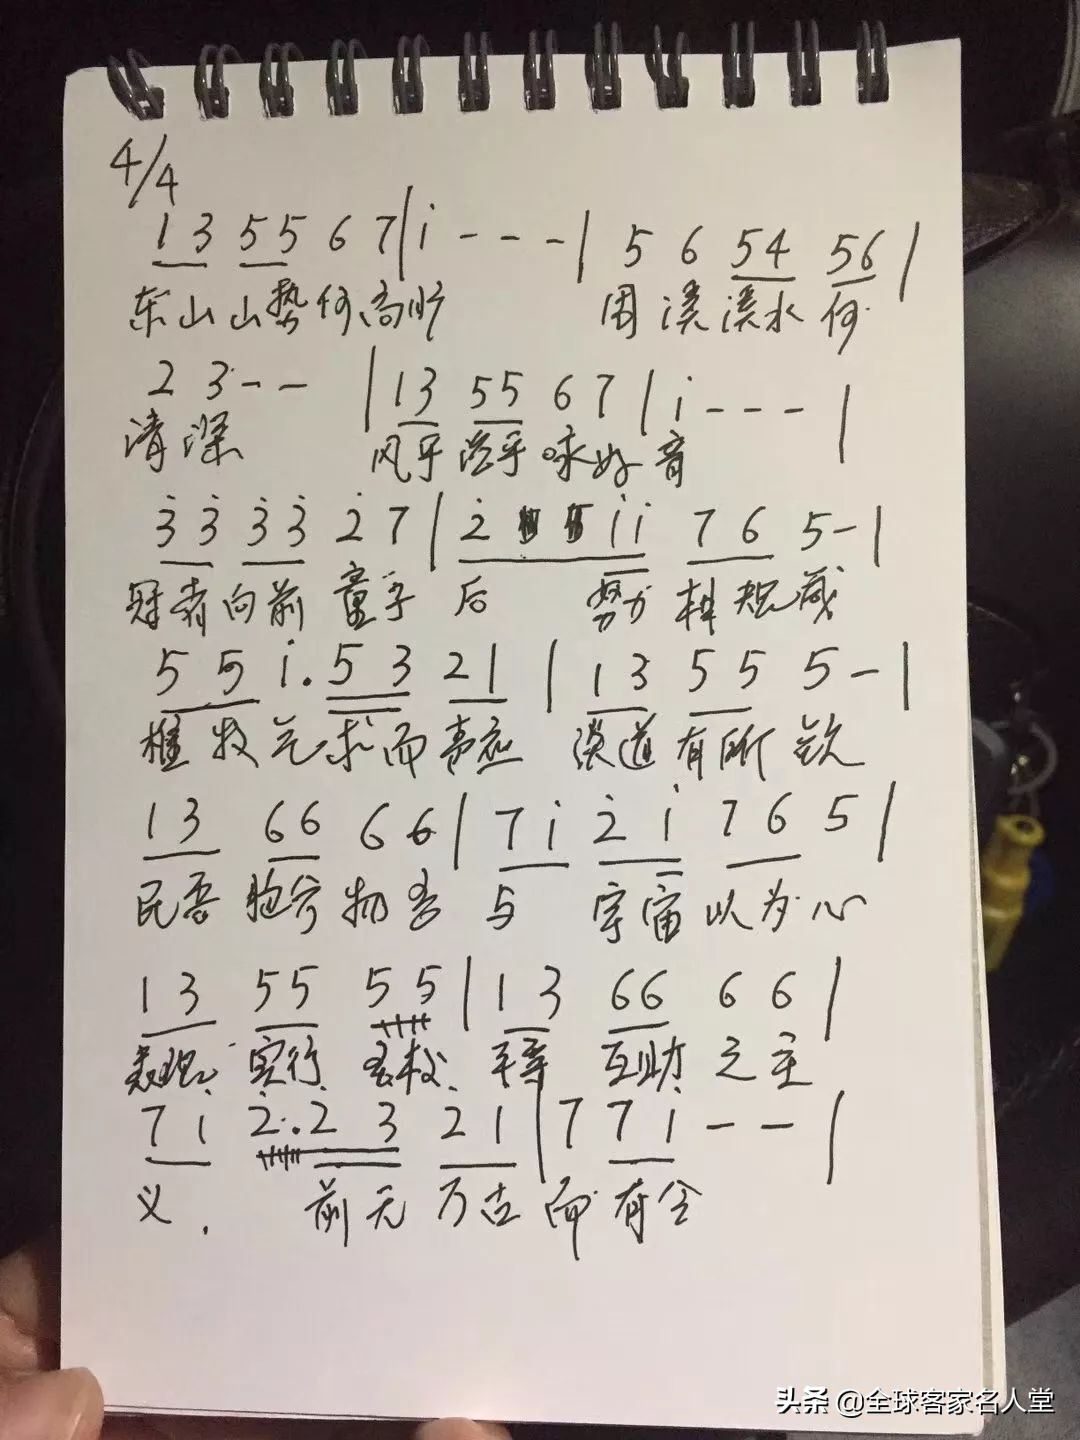 4/4
1 3 5 5 6 7 | i - - - | 5 6 5 4 5 6 |
东山山势何高 周溪溪水何
2 3 - - | 1 3 5 5 6 7 | i - - - |
清深 风乎 乎咏好音
3̇ 3̇ 3̇ 3̇ 2̇ 7 | 2̇ i i 7 6 5 - |
冠者向前童子后 努力 规箴
5 5 i. 5 3 2 1 | 1 3 5 5 5 - |
求而 应 道有所钦
1 3 6 6 6 6 | 7 i 2̇ i 7 6 5 |
民吾胞兮物吾与 宇宙以为心
1 3 5 5 5 5 | 1 3 6 6 6 6 |
实行 校、平等 互助之主
7 i 2̇. 2 3 2 1 | 7 7 i - - |
义. 前无万古而有今
头条 @全球客家名人堂